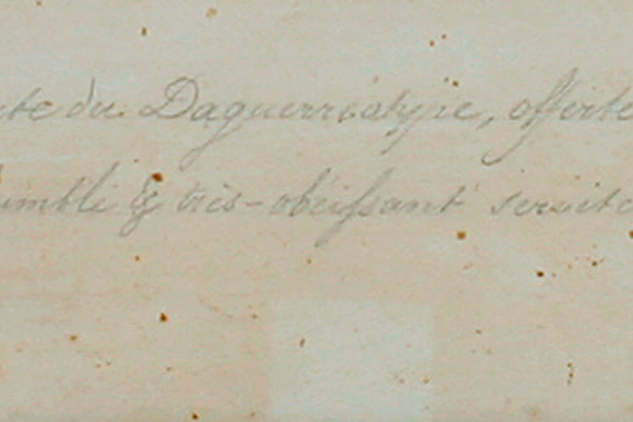 du Daguerréotype, offerte
humble & très-obéissant servite